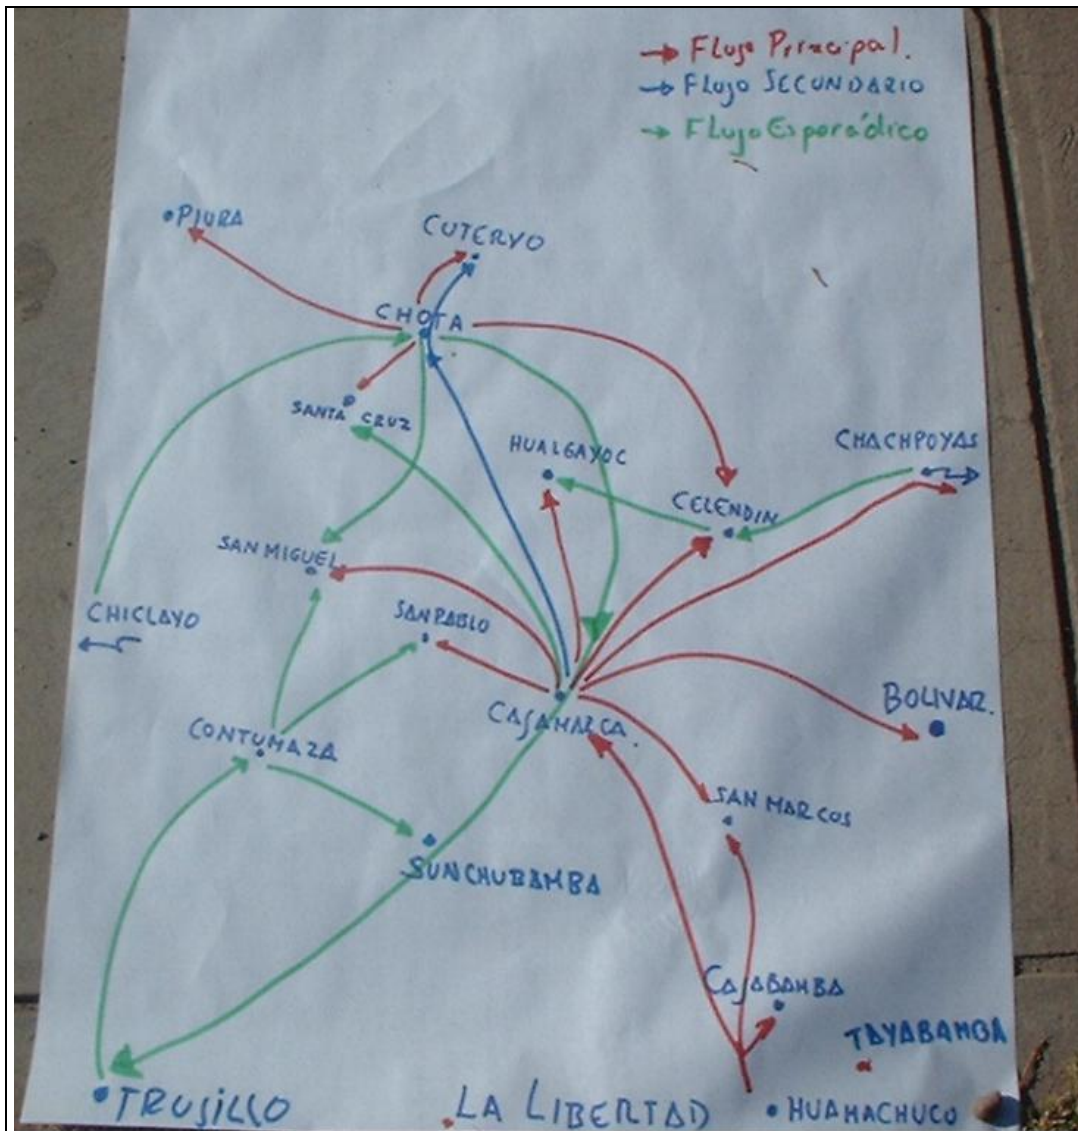 → Flujo Principal.
→ Flujo SECUNDARIO
→ Flujo Esporádico
PIURA
CUTERVO
CHOTA
SANTA CRUZ
HUALGAYOC
CHACHPOYAS
CELENDIN
SAN MIGUEL
CHICLAYO
SAN PABLO
BOLIVAR.
CAJAMARCA.
CONTUMAZA
SAN MARCOS
SUNCHUBAMBA
CAJABAMBA
TAYABAMBA
TRUJILLO
LA LIBERTAD
HUAMACHUCO